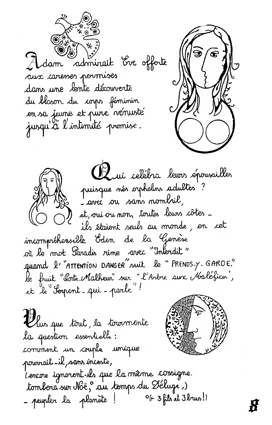 Adam admirait Eve offerte
aux caresses permises
dans une lente découverte
du blason du corps féminin
en sa jeune et pure vénusté
jusqu'à l'intimité promise.
Qui célèbra leurs épousailles
puisque nés orphelins adultes ?
- avec ou sans nombril,
et, oui ou non, toutes leurs côtes -
ils étaient seuls au monde, en cet
incompréhensible Eden de la Genèse
où le mot Paradis rime avec "Interdit"
quand l'"ATTENTION DANGER" suit le "PRENDS-Y-GARDE,"
le fruit "Vote-Malheur" sur l'"Arbre aux Maléfices",
et le "Serpent-qui-parle" !
Plus que tout, la tourmente
la question essentielle :
comment un couple unique
pourrait-il, sans inceste,
(encore ignorent-ils que la même consigne
tombera sur Noë, au temps du Déluge,)
- peupler la planète !
3 fils et 3 brus !)
8